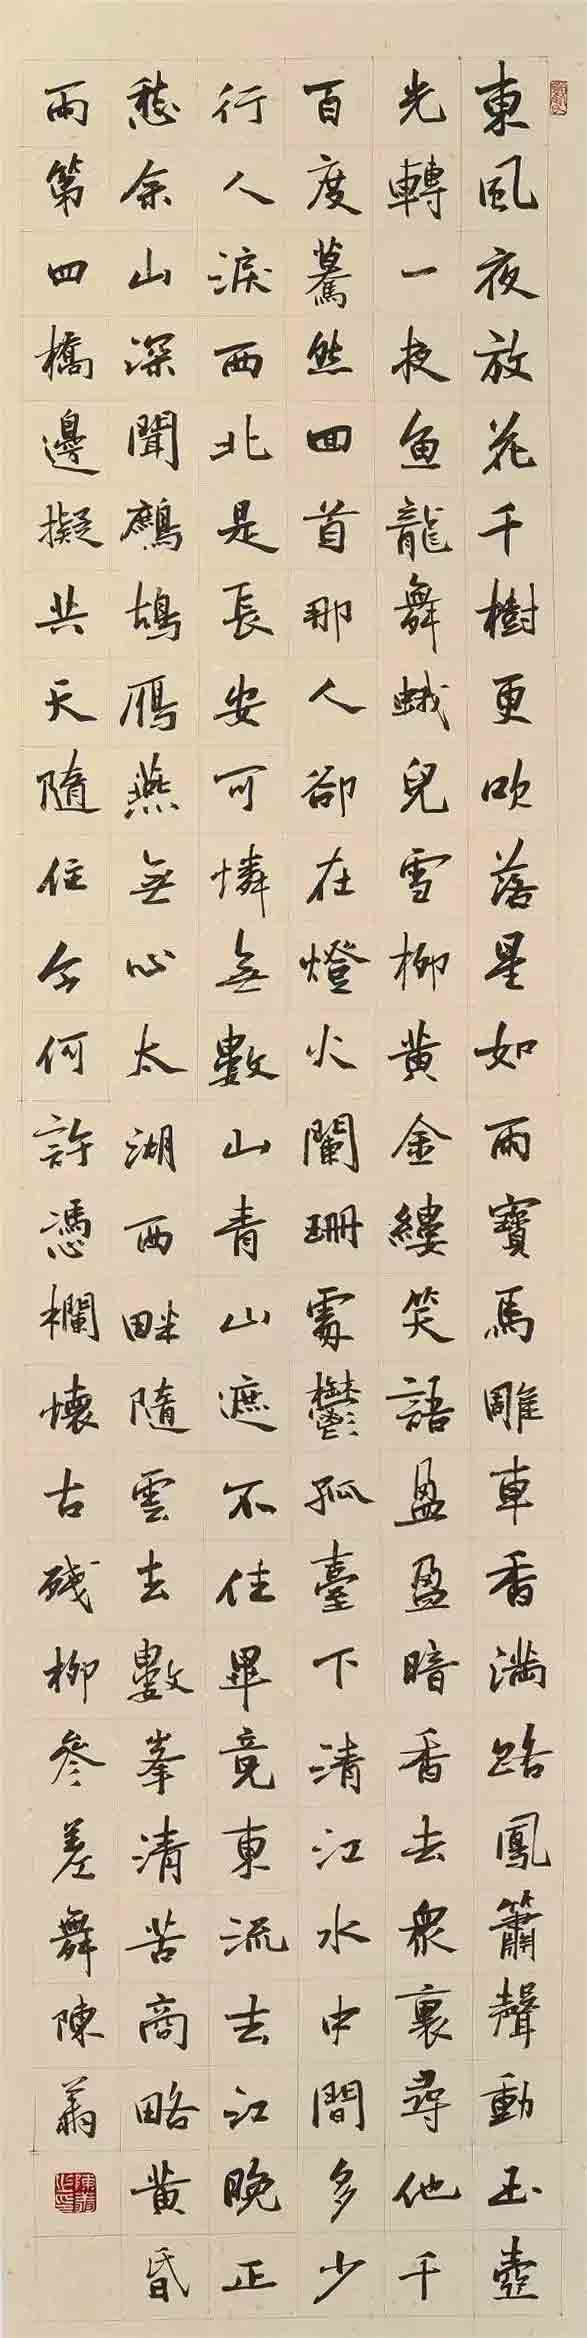 東風夜放花千樹更吹落星如雨寶馬雕車香滿路鳳簫聲動玉壺
光轉一夜魚龍舞蛾兒雪柳黃金縷笑語盈盈暗香去眾裏尋他千
百度驀然回首那人卻在燈火闌珊處鬱孤臺下清江水中間多少
行人淚西北是長安可憐無數山青山遮不住畢竟東流去江晚正
愁余山深聞鷓鴣雁燕無心太湖西畔隨雲去數峯清苦商略黃昏
雨第四橋邊擬共天隨住今何許憑欄懷古殘柳參差舞陳